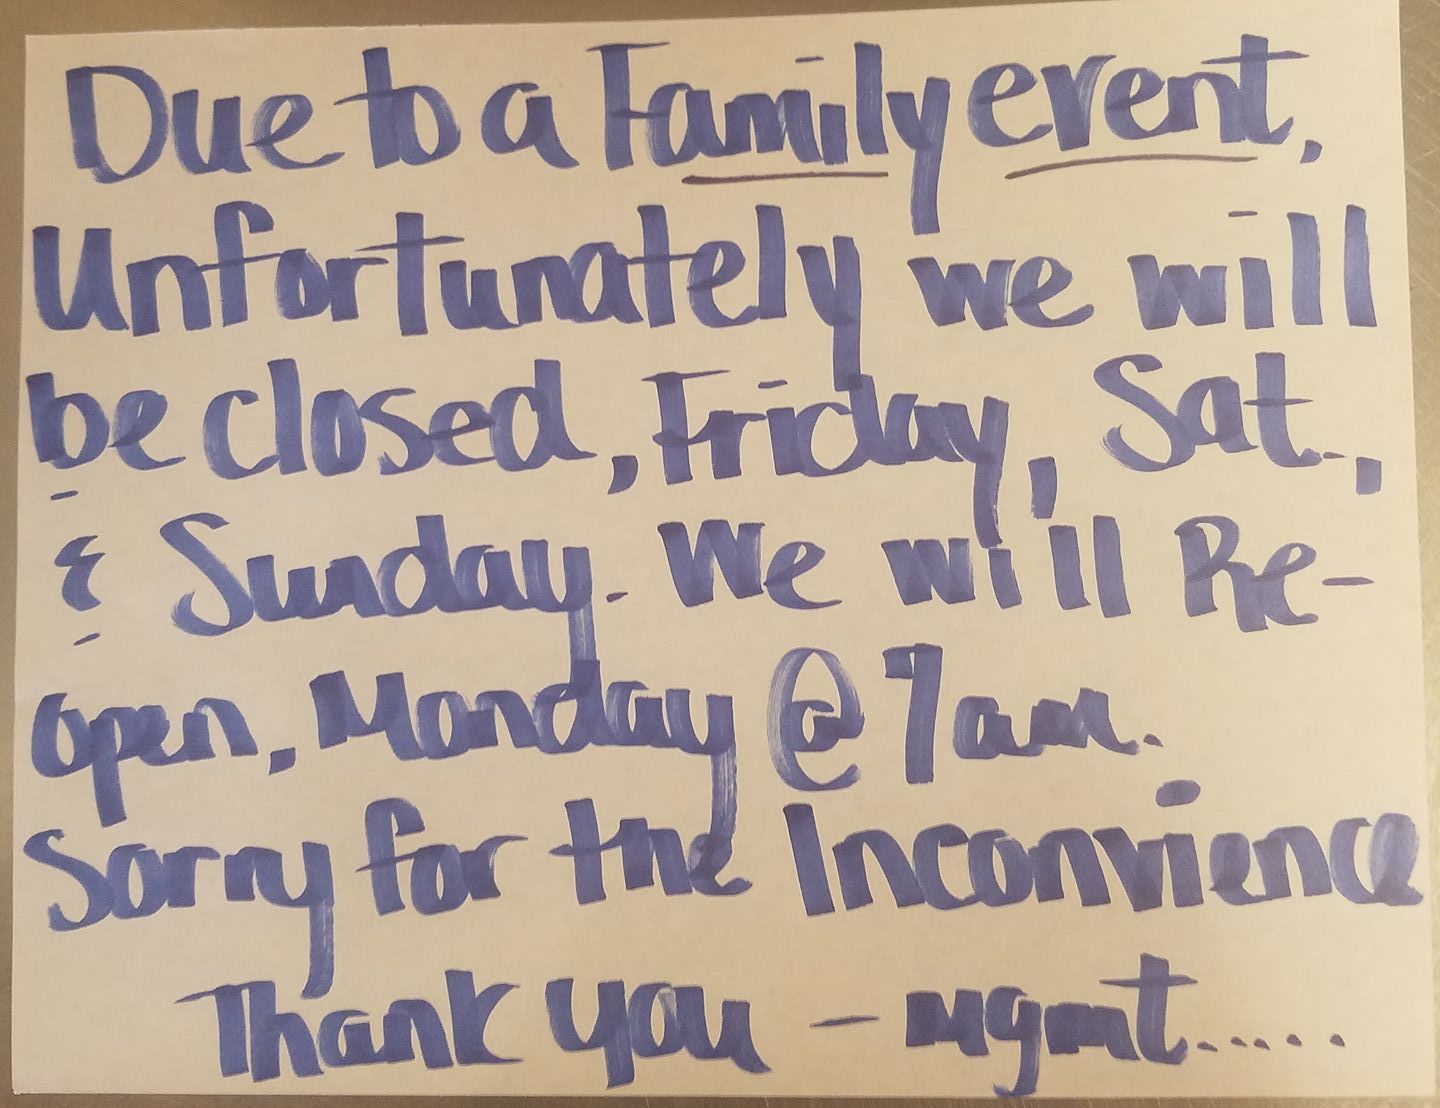 Due to a Family event,
Unfortunately we will
be closed, Friday, Sat.,
& Sunday. We will Re-
open, Monday @ 7am.
Sorry for the Inconvience
Thank you - mgmt.....